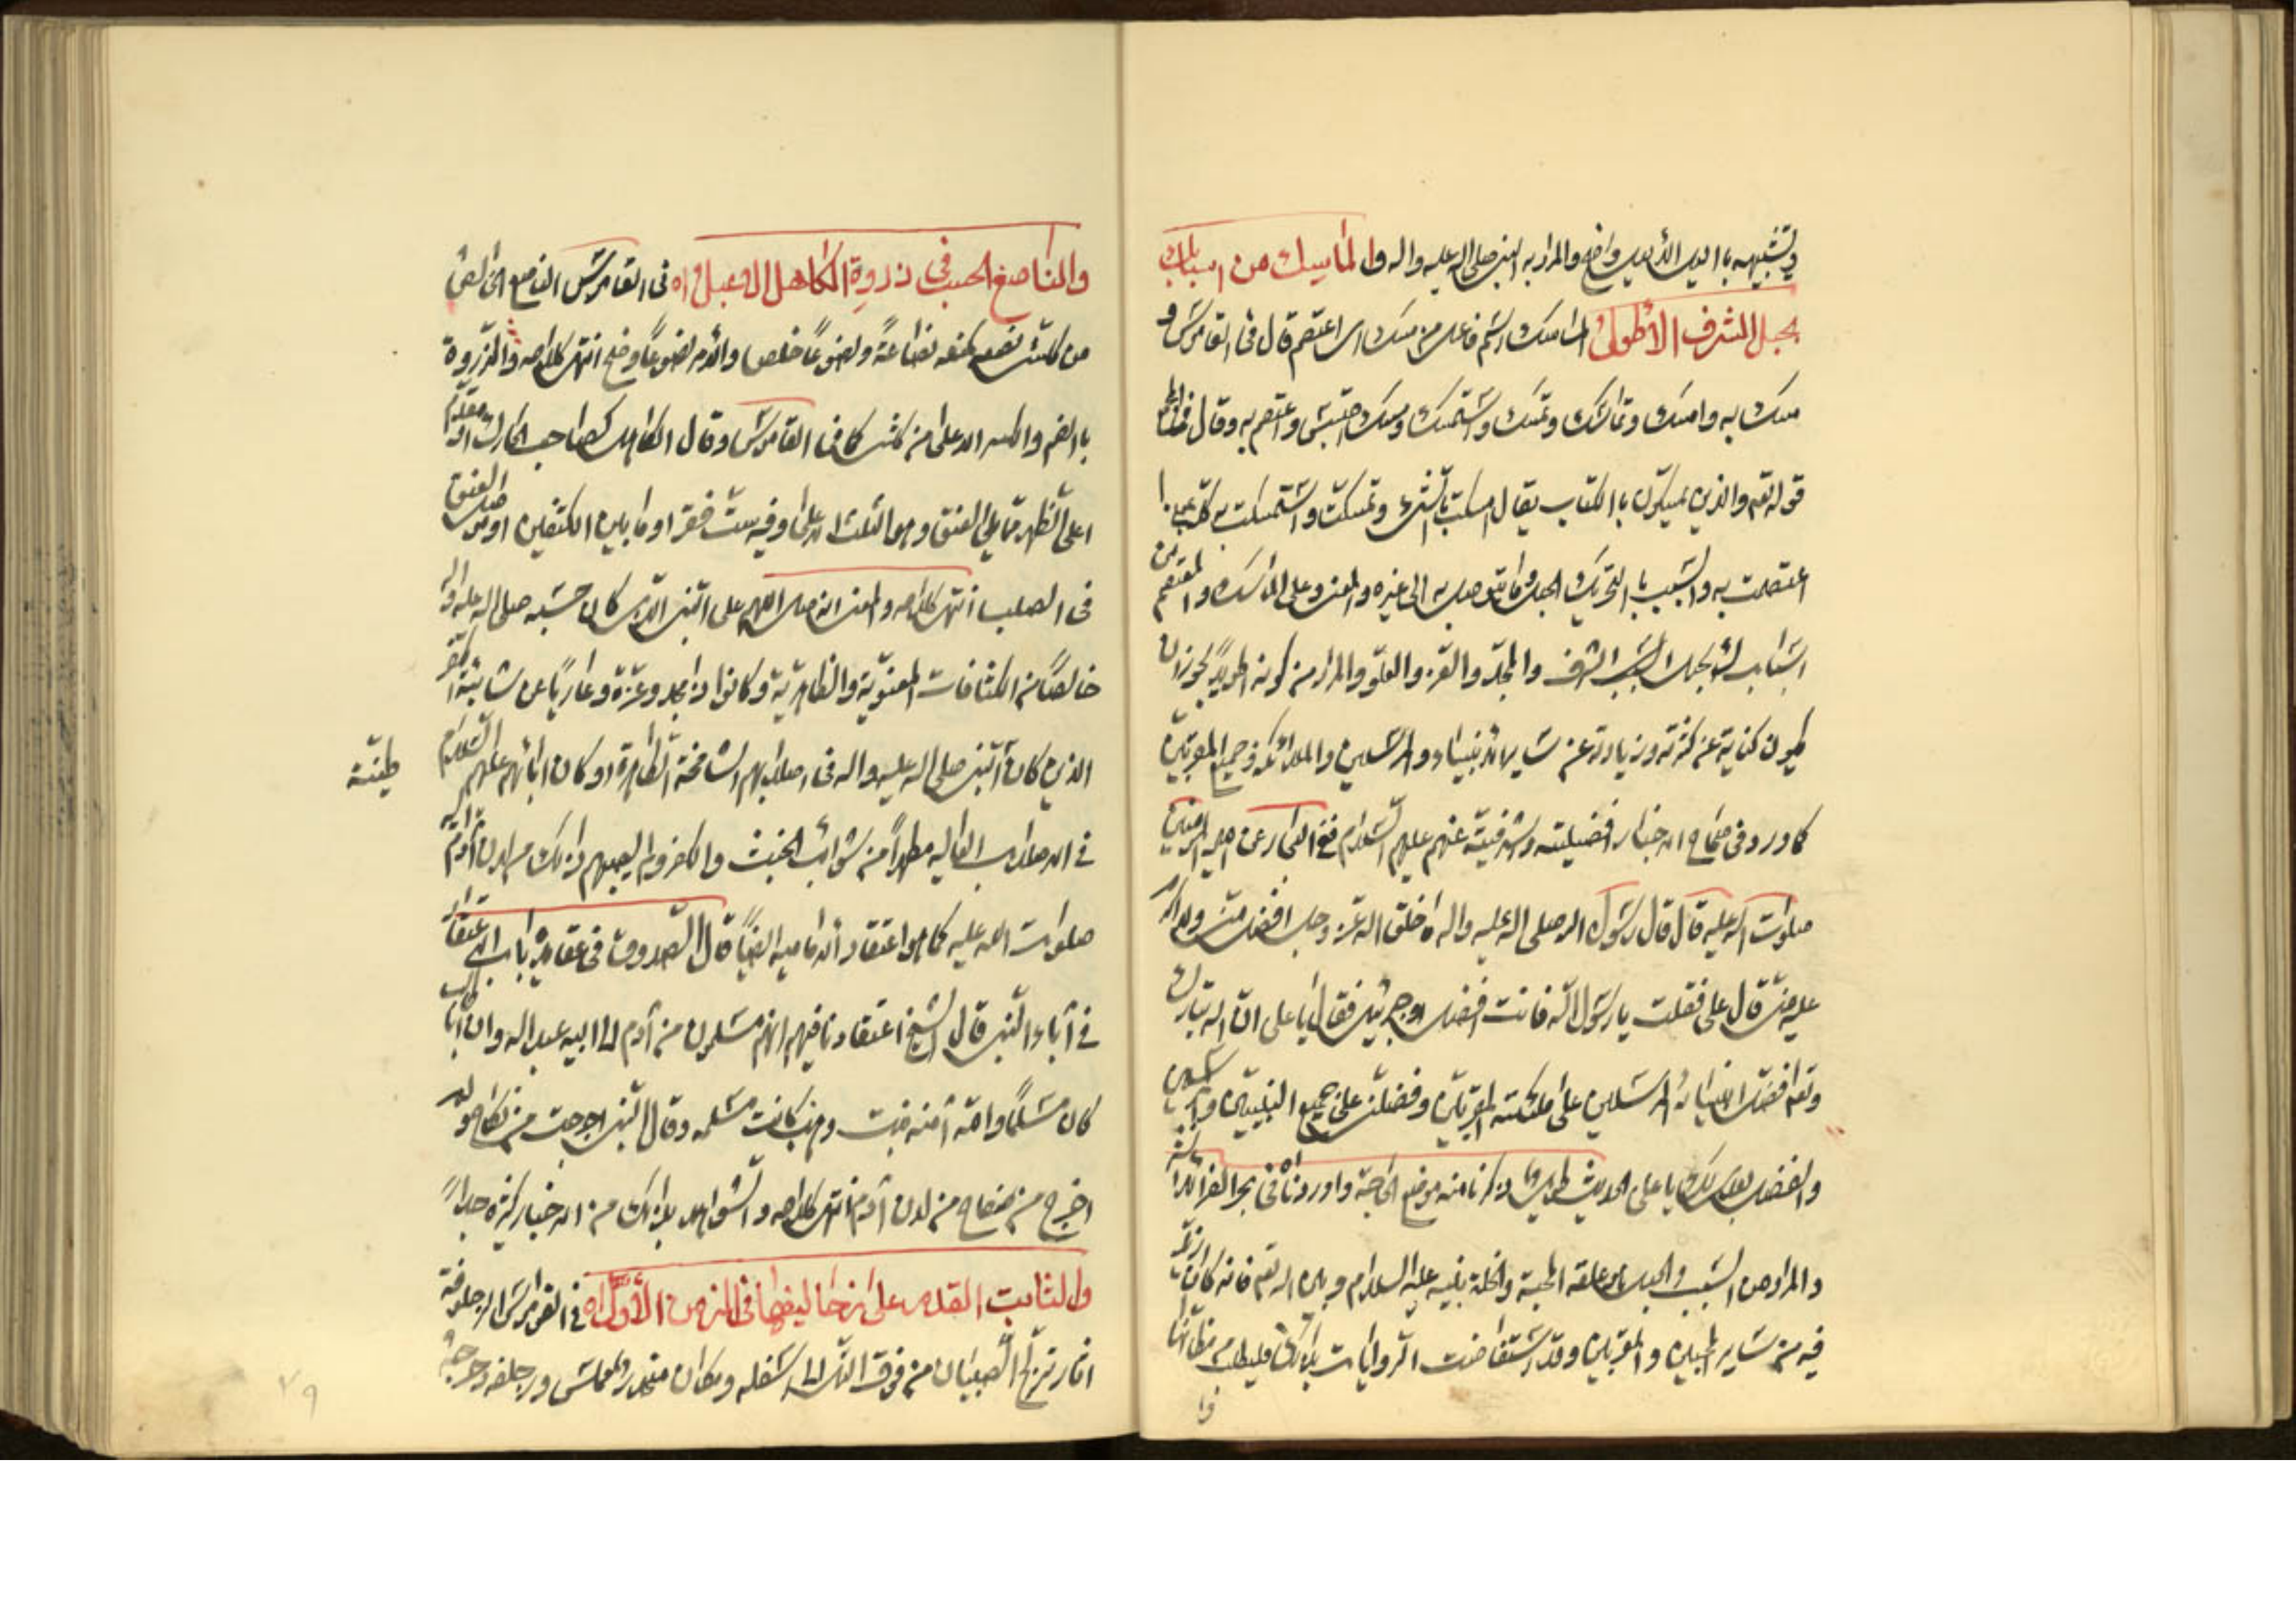 وتشبيهه بالليل الأليل واضح والمراد به النبي صلى الله عليه واله والماسك من اسبابك
بحبل الشرف الأطول الماسك اسم فاعل من مسك اى اعتصم قال فى القاموس و
مسك به وامسك وتماسك وتمسك واستمسك ومسك احتبس واعتصم به وقال
قوله تعم والذين يمسكون بالكتاب يقال امسكت بالشىء وتمسكت واستمسكت به
اعتصمت به والسبب بالتحريك الحبل وما يتوصل به الى غيره والمعنى وعلى الماسك والمعتصم من
اسبابك بحبل الشرف والمجد والعز والعلو والمراد من كونه اطول يجوز ان
يكون كناية عن كثرته وزيادته عن ساير الانبياء والمرسلين والملائكة وجميع المقربين
كما ورد فى صحاح الاخبار افضيليته واشرفيته عنهم عليهم السلام ففى البحار عن امير المؤمنين
صلوات الله عليه قال قال رسول الله صلى الله عليه واله ما خلق الله عز وجل افضل منى ولا اكرم
عليه منى قال على فقلت يا رسول الله فانت افضل او جبرئيل فقال يا على ان الله تبارك
وتعم افضل انبيائه المرسلين على ملئكته المقربين وفضلنى على جميع النبيين والمرسلين
والفضل بعدى لك يا على الحديث طويل ذكرنا منه موضع الحاجة واوردناه فى بحر الفرائد
والمراد من السبب والحبل علقه المحبة والخلة بنبيه عليه السلام وبين الله تعم فانه كان
فيه من ساير المحبين والمقربين وقد استفاضت الروايات بذلك فليطلب من مظانها
وا
والناصع الحسب فى ذروة الكاهل الاعبل اه فى القاموس الناصع الخالص
من كل شىء نصع كمنع نصاعة ونصوعا خلص والامر نصوعا وضح انتهى كلامه والذروة
بالضم والكسر الاعلى من كل شىء كما فى القاموس وقال الكاهل كصاحب الحارك او مقدم
اعلى الظهر مما يلى العنق وهو الثلث الاعلى وفيه ست فقر او ما بين الكتفين او موصل العنق
فى الصلب انتهى كلامه والمعنى انه صل اللهم على النبى الذى كان حسبه صلى الله عليه واله
خالصا من الكثافات المعنوية والظاهرية وكانوا ذا مجد وعزة وعاريا عن شائبة الكفر
الذين كان النبى صلى الله عليه واله فى اصلابهم الشامخة الطاهرة او كان ابائهم عليهم السلام
طينته
فى الاصلاب العاليه مطهرا من شوائب الخبث والكفر ولم يصبهم ذلك من لدن آدم اليه
صلوات الله عليه كما هو اعتقاد الاماميه ايضا قال الصدوق فى عقايده باب الاعتقاد
فى آباء النبى قال الشيخ اعتقادنا فيهم انهم مسلمون من آدم الى ابيه عبد الله وان ابا طالب
كان مسلما وامه آمنه بنت وهب كانت مسلمه وقال النبى اخرجت من نكاح ولم
اخرج من سفاح من لدن آدم انتهى كلامه والشواهد بذلك من الاخبار كثيره جدا
والثابت القدم على زحاليفها فى الزمن الأول اه فى القاموس الزحلوفة
اثار تزلج الصبيان من فوق التل الى اسفله ومكان منحدر مملس وزحلفه دحرجه
۷۹